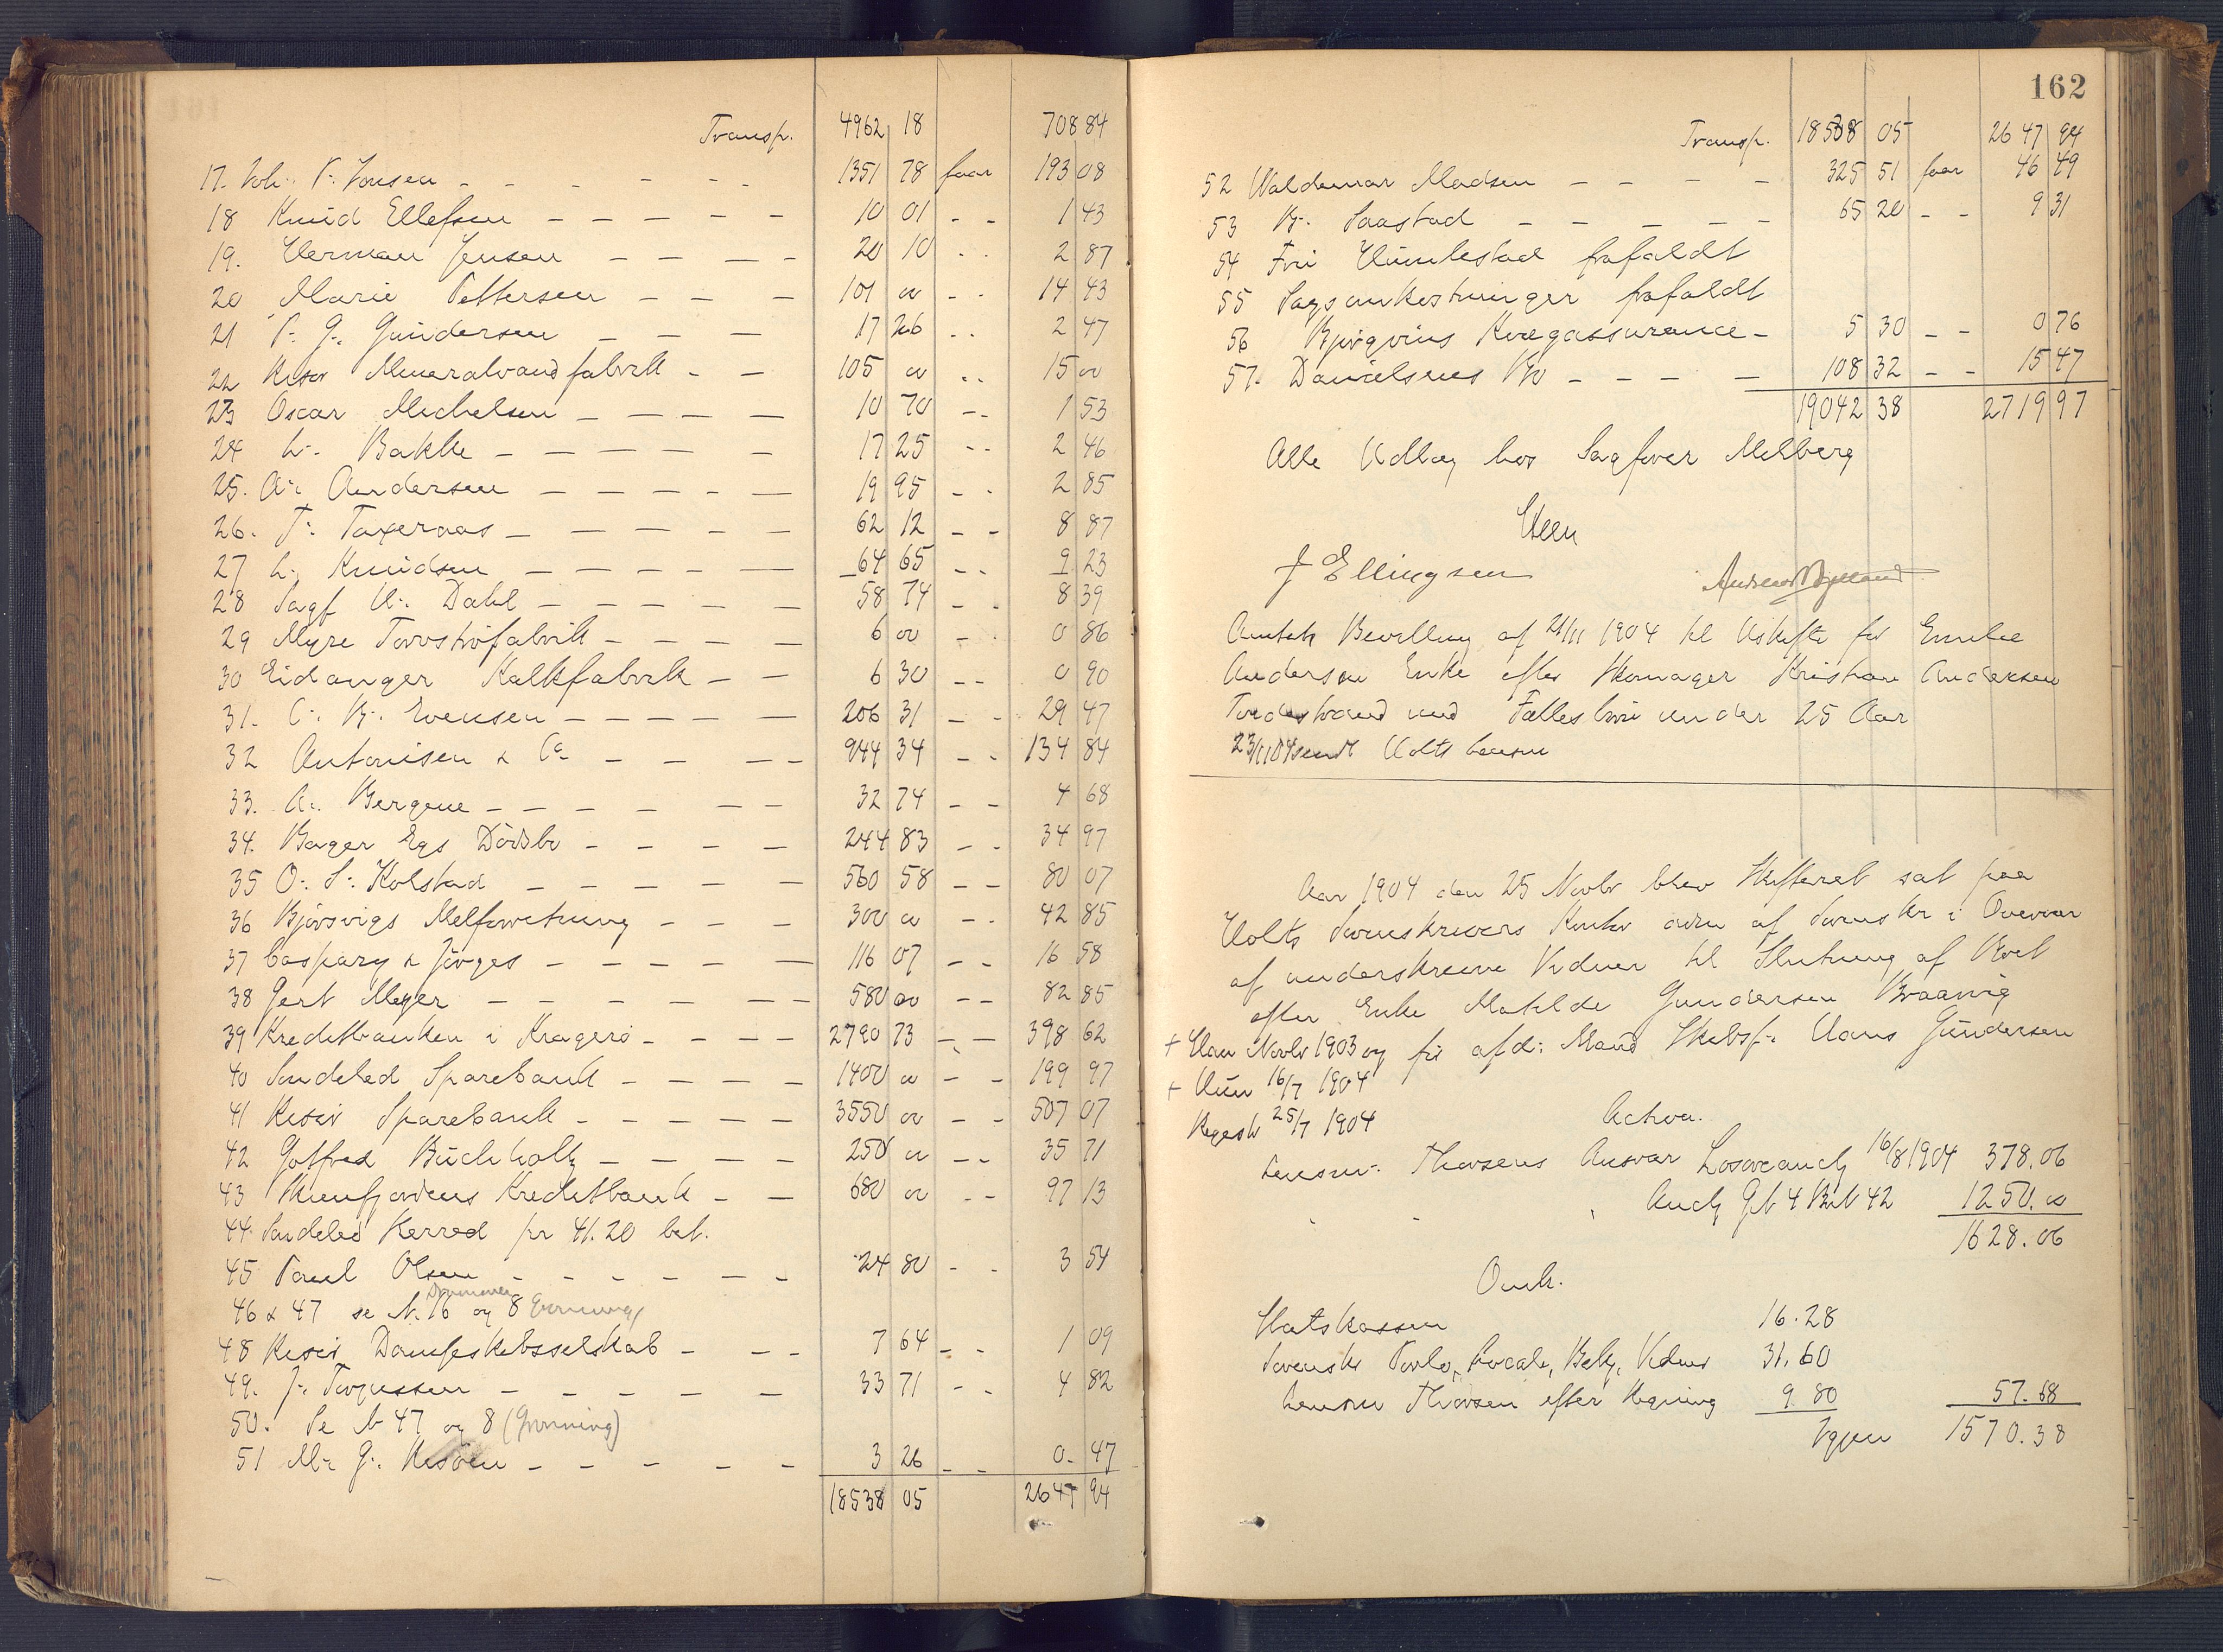 Transp. 4962 18 708 84
17. Joh. P. Jonsen - - - - - - 1351 78 faar 193 08
18 Knud Ellefsen - - - - - 10 01 - - 1 43
19. Herman Jensen - - - - 20 10 - - 2 87
20 Marie Pettersen - - - 101 00 - - 14 43
21 P. G. Gundersen - - - 17 26 - - 2 47
22 Risør Mineralvandfabrik - - 105 00 - - 15 00
23 Oscar Michelsen - - - - 10 70 - - 1 53
24 L. Bakke - - - - - - 17 25 - - 2 46
25. A. Andersen - - - - - 19 95 - - 2 85
26. T. Taxeraas - - - - - 62 12 - - 8 87
27 L. Knudsen - - - - - - 64 65 - - 9 23
28 Sagf H. Dahl - - - - - 58 74 - - 8 39
29 Myre Torvstrøfabrik - - - - 6 00 - - 0 86
30 Eidanger Kalkfabrik - - 6 30 - - 0 90
31. C. Evensen - - - - - 206 31 - - 29 47
32 Antonisen & Co - - - - 944 34 - - 134 84
33. A. Bergene - - - - - - 32 74 - - 4 68
34. Bager Egs Dödsbo - - - - 244 83 - - 34 97
35 O. S. Kolstad - - - - - 560 58 - - 80 07
36 Bjørsvigs Melforretning - - - 300 00 - - 42 85
37 Caspary & Jörges - - - - - 116 07 - - 16 58
38 Gert Meyer - - - - - - 580 00 - - 82 85
39 Kreditbanken i Kragerø - - - - 2790 73 - - 398 62
40 Søndeled Sparebank - - - - 1400 00 - - 199 97
41 Risør Sparebank - - - - - 3550 00 - - 507 07
42 Gotfred Buchholtz - - - - 250 00 - - 35 71
43 Skiensfjordens Kreditbank - - 680 00 - - 97 13
44. Søndeled Herred pr 41.20 bet.
45 Paul Olsen - - - - - - 24 80 - - 3 54
46 & 47 se N. 16 og 8
48 Risør Dampskibsselskab - - - 7 64 - - 1 09
49. J. Torjussen - - - - - 33 71 - - 4 82
50. Se N 47 og 8 (Grønning)
51 M. G. - - - - - 3 26 - - 0. 47
18538 05 2647 94
162
Transp. 18538 05 2647 94
52 Waldemar Madsen - - - - 325 51 faar 46 49
53 Saastad - - - - - 65 20 - - 9 31
54 Fru Humlestad frafaldt
55 Sagsomkostninger frafaldt
56 Bjørgvins Kvægassurance - 5 30 - - 0 76
57. Danielsens Bo - - - - 108 32 - - 15 47
19042 38 2719 97
Alle Udlæg hos Sagfører Melberg
Steen
J Ellingsen
Amtets Bevilling af 21/11 1904 til Uskifte for Emilie
Andersen Enke efter Skomager Kristian Andersen
Tvedestrand med Fællesbørn under 25 Aar
23/11 04 sendt Holts
Aar 1904 den 25 Novbr blev Skifteret sat paa
Holts Sorenskrivers Kontor adm af Sorenskr i Overvær
af underskrevne Vidner til Slutning af Boet
efter Enke Matilde Gundersen Braavig
+ Han Novbr 1903 og før afd. Mand Skibsf. Hans Gundersen
+ Hun 16/7 1904
Regestr 25/7 1904
Activa.
Lensm. Thorsens Ansvar Løsøreauct 16/8 1904 378.06
" - , Auct Gb 4 Bnr 42 1250.00
1628.06
Omk.
Statskassen 16.28
Sorenskr Porto, Locale, Bekj, Vidner 31.60
Lensm Thorsen efter Regning 9.80 57.68
Igjen 1570.38